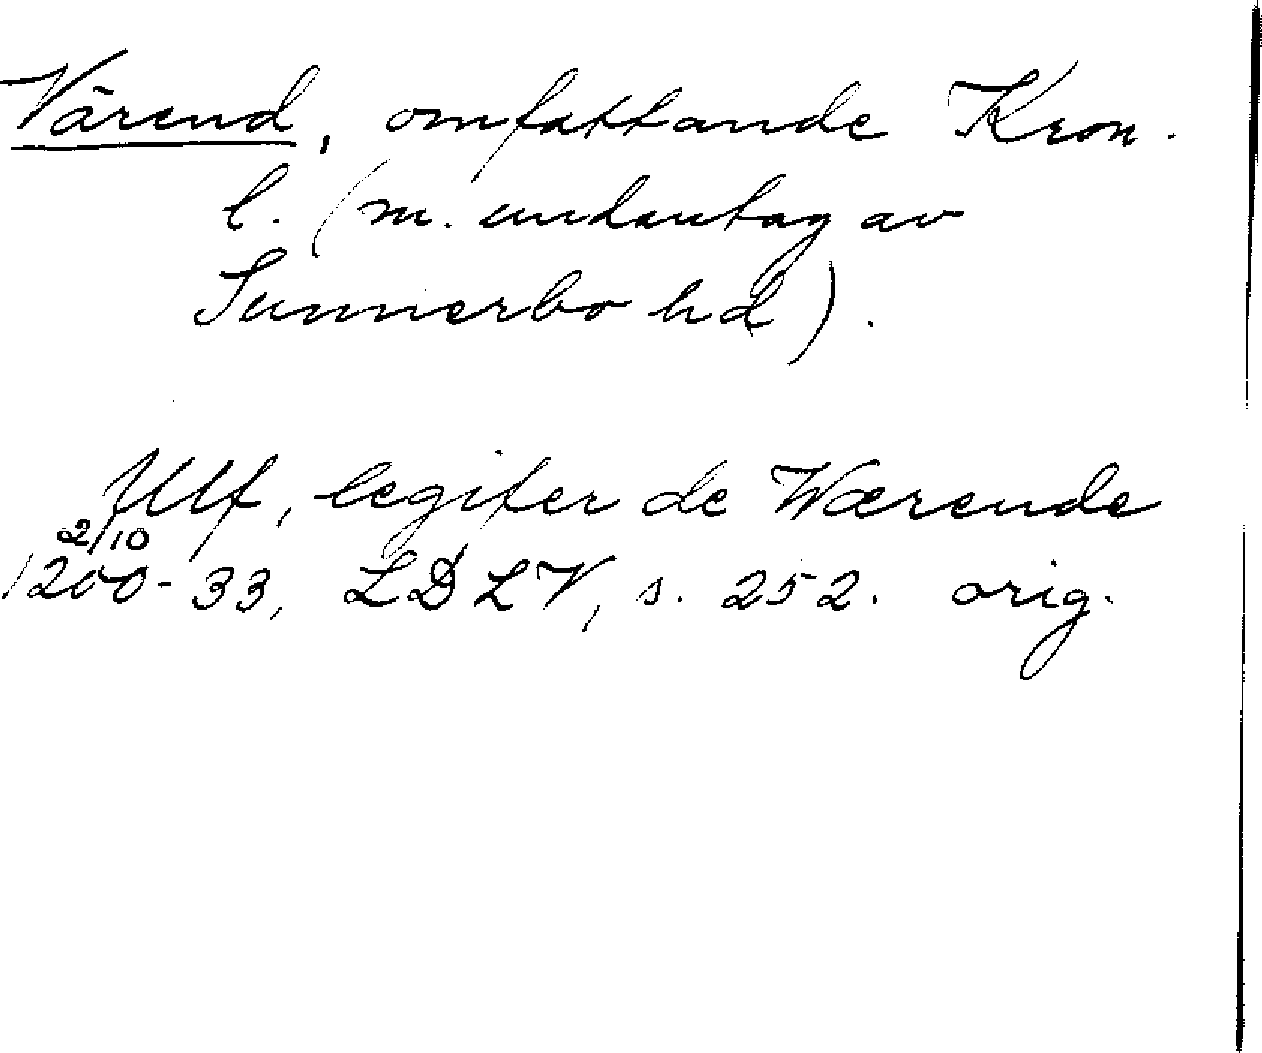 Värend, omfattande Kron.
l. (m. undantag av
Sunnerbo hd).
Ulf, legifer de Wærende
2/10
1200-33, LDLV, s. 252. orig.